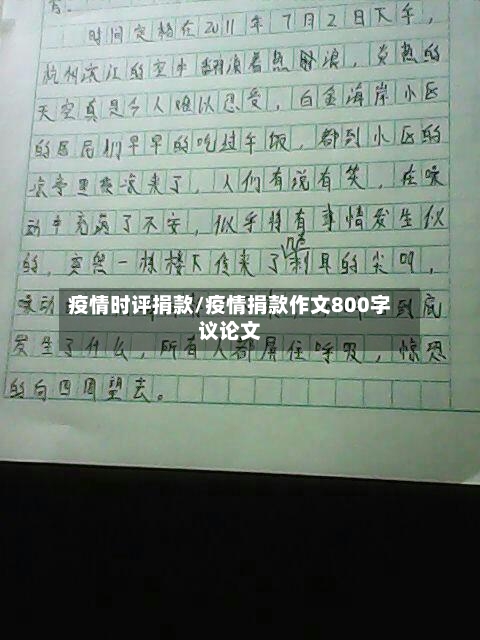 言。
时间定格在2011年7月2日下午，
杭州滨江的空中翻滚着热浪，炎热的
天空真是令人难以忍受，白金海岸小区
的居民们早早的吃过午饭，都到小区的
凉亭里乘凉来了，人们有说有笑，在喉
动中充满了不安，似乎将有事情发生似
的，突然一栋楼下传来了刺耳的尖叫，
疫情时评捐款/疫情捐款作文800字
议论文
到底
发生了什么，所有人都屏住呼吸，惊恐
的向四周望去。